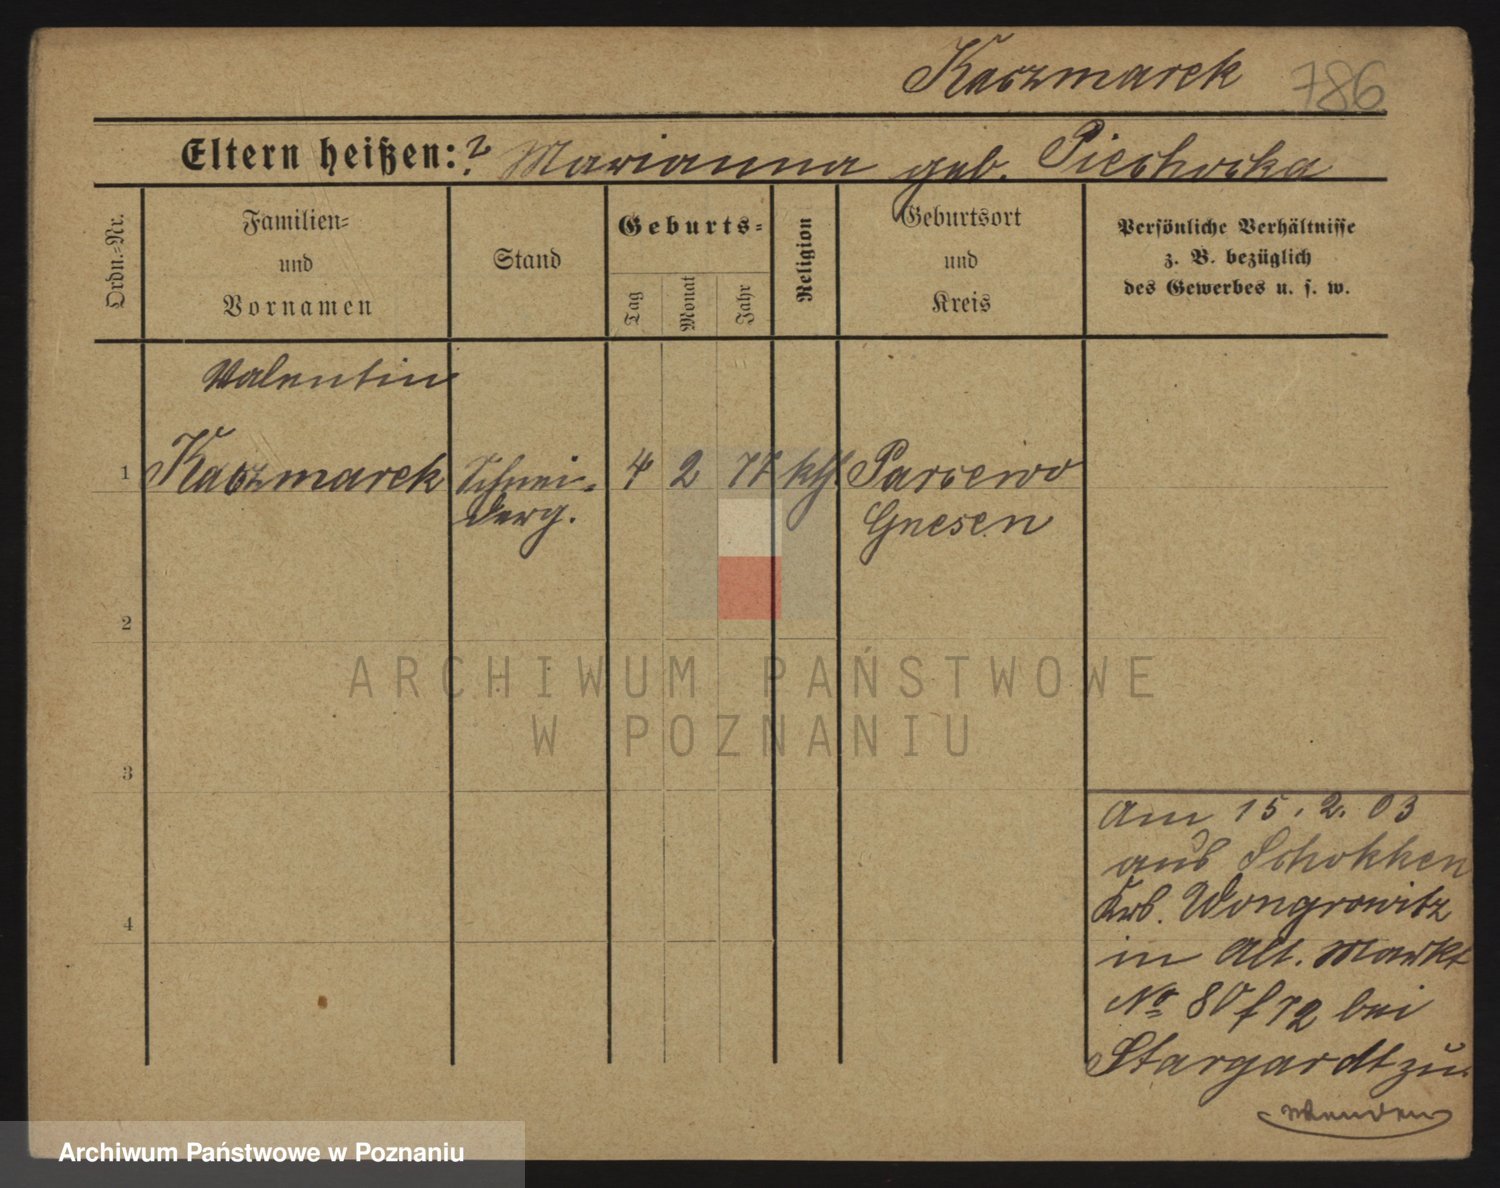 Kaczmarek 786
Eltern heißen: ? Marianna geb. Piechocka
Ordn.-Nr.
Familien- und Vornamen
Stand
Geburts-
Tag
Monat
Jahr
Religion
Geburtsort und Kreis
Persönliche Verhältnisse
z. B. bezüglich
des Gewerbes u. s. w.
Valentin
1 Kaczmarek Schnei- 4 2 77 kth.
derg.
Gnesen
2
3
4
Am 15. 2. 03
aus Schokken
Krs. Wongrowitz
in Alt. Markt
No 80/82 bei
Stargardt zu.
Wenden
ARCHIWUM PAŃSTWOWE
W POZNANIU
Archiwum Państwowe w Poznaniu